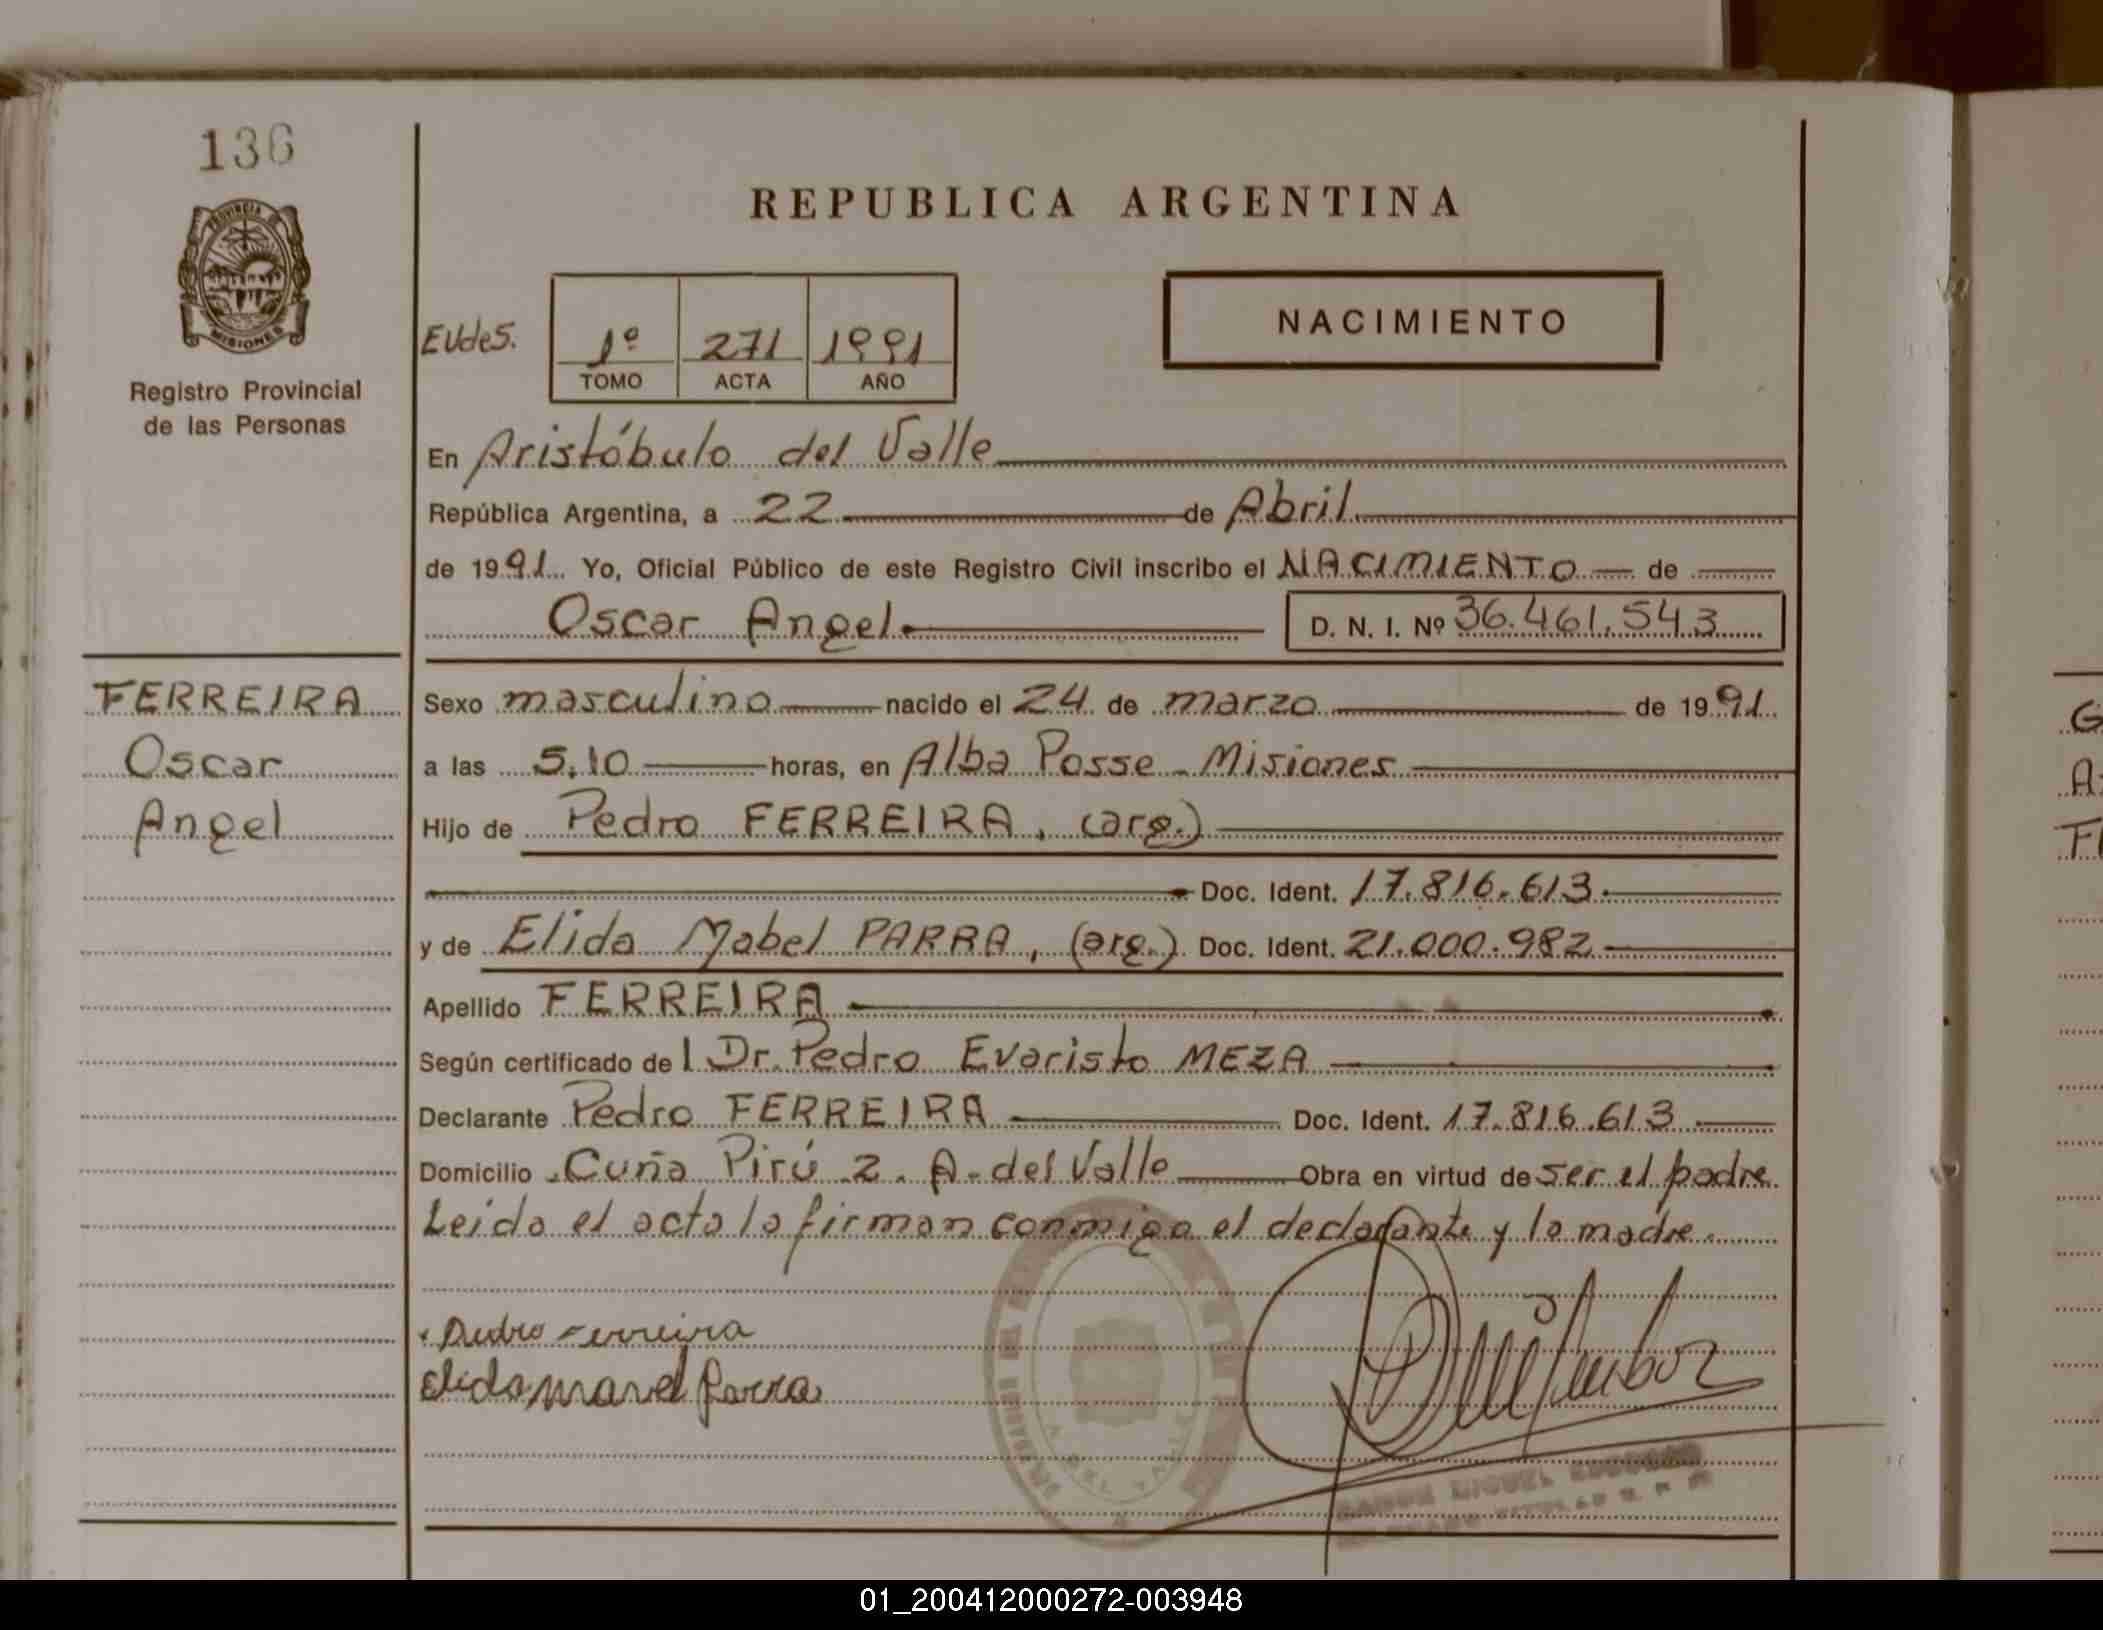 136
PROVINCIA D
MISIONES
Registro Provincial
de las Personas
REPUBLICA ARGENTINA
NACIMIENTO
EUdeS. 1º 271 1991
TOMO ACTA AÑO
En Aristóbulo del Valle
República Argentina, a 22 de Abril
de 1991 Yo, Oficial Público de este Registro Civil inscribo el NACIMIENTO de
Oscar Angel D. N. I. Nº 36.461.543
FERREIRA
Oscar
Angel
Sexo masculino nacido el 24 de marzo de 1991
a las 5.10 horas, en Alba Posse - Misiones
Hijo de Pedro FERREIRA, (arg.)
Doc. Ident. 17.816.613
y de Elida Mabel PARRA, (arg.) Doc. Ident. 21.000.982
Apellido FERREIRA
Según certificado de l Dr. Pedro Evaristo MEZA
Declarante Pedro FERREIRA Doc. Ident. 17.816.613
Domicilio Cuña Pirú 2. A. del Valle Obra en virtud de ser el padre.
Leida el acta la firman conmigo el declarante y la madre.
Pedro Ferreira
elida mavel parra
MIGUEL
01_200412000272-003948